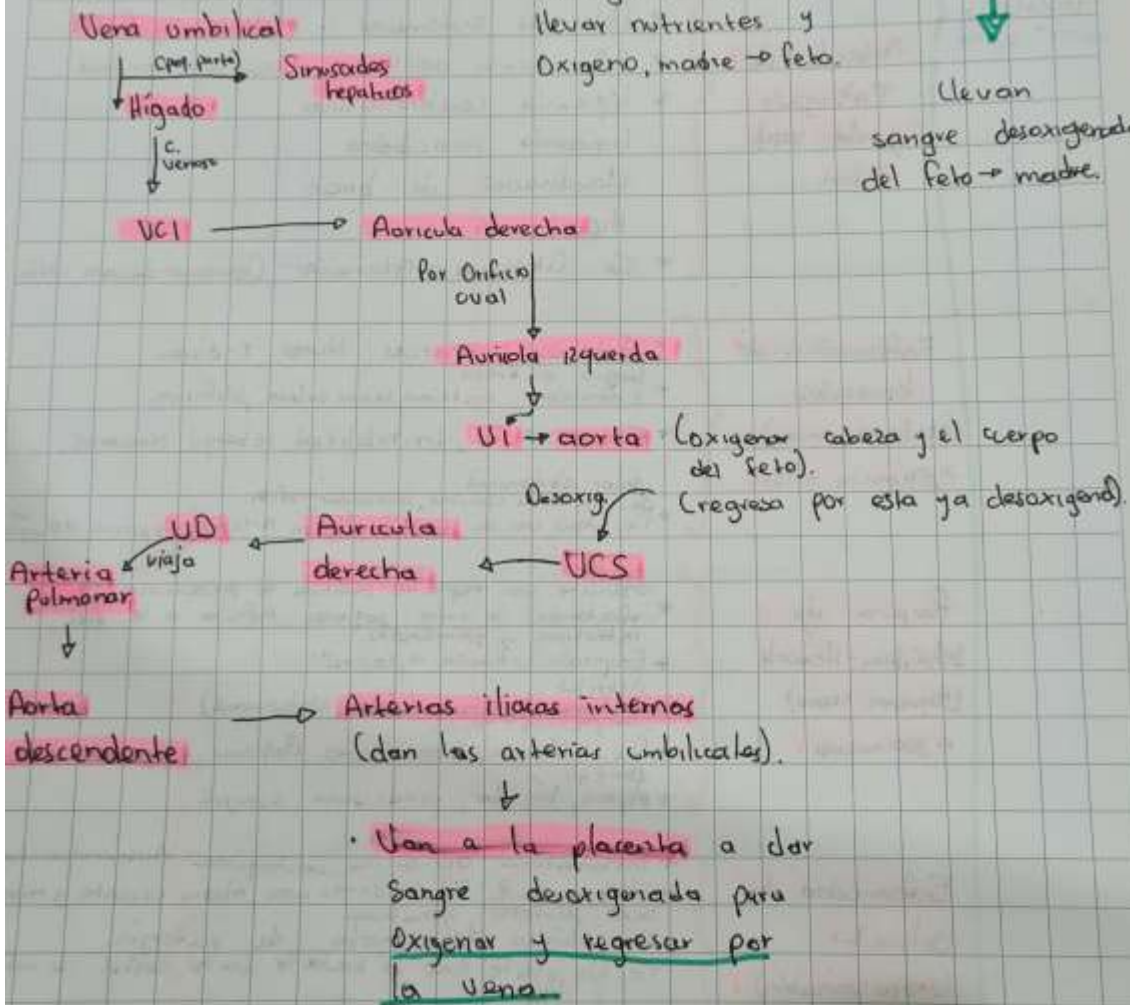 Vena umbilical
(peq. parte)
Sinusoides
hepaticos
Hígado
C.
venoso
llevar nutrientes y
Oxigeno, madre → feto.
Llevan
sangre desoxigenada
del feto → madre.
VCI → Auricula derecha
Por Orificio
oval
Auricula izquerda
VI → aorta (oxigenar cabeza y el cuerpo
del feto).
Desoxig. (regresa por esta ya desoxigend).
VCS
Auricula
derecha
VD
viaja
Arteria
Pulmonar
Aorta
descendente
→ Arterias iliacas internas
(dan las arterias umbilicales).
· Van a la placenta a dar
Sangre desoxigenada para
Oxigenar y regresar por
la vena.